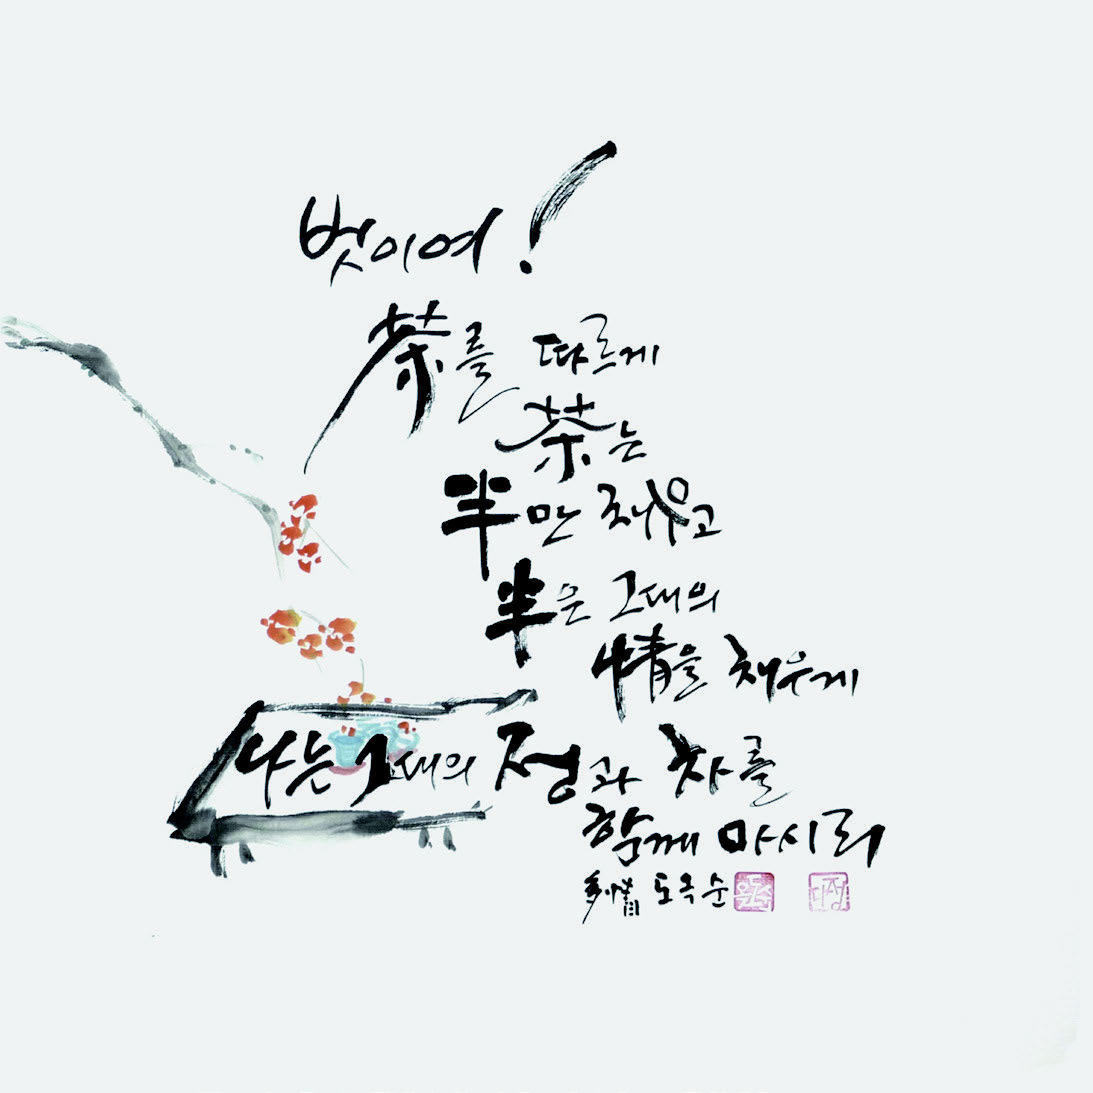 벗이여!
茶를 따르게
茶는
半만 채우고
半은 그대의
情을 채우게
나는 그대의 정과 차를
함께 마시리
多情 도옥순
도옥순
다정